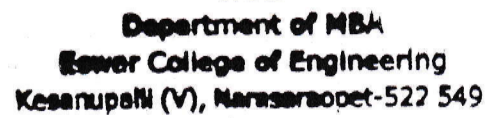 Department of MBA
Eswar College of Engineering
Kesanupalli (V), Narasaraopet-522 549